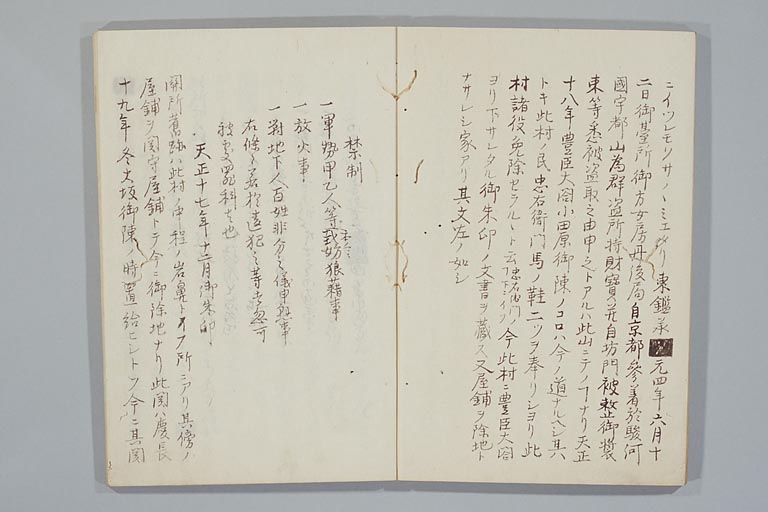 ニイツレモツサノヽミエタリ東鑑承元四年六月十
二日御臺所御方女房丹後局自京都參着於駿河
國宇都山為群盗所持財寶并自坊門被整御裝
束等悉被盗取之由申之トアルハ此山ニテノ丁ナリ天正
十八年豊臣大閤小田原御陳ノコロハ今ノ道ナルヘシ其
トキ此村ノ民忠右衛門馬ノ鞋二ツヲ奉リシヨリ此
村諸役ヲ免除セラルヽト云今此村ニ豊臣大閤
ヨリ下サレタル御朱印ノ文書ヲ藏ス又屋鋪ヲ除地ト
ナサレシ家アリ其文左ノ如シ
禁制
一軍勢甲乙人等亂妨狼藉事
一放火事
一對地下人百姓非分之儀申懸事
右條々若於違犯之等者忽可
被處罪科者也
天正十七年十二月御朱印
関所舊跡ハ此村ノ中程ノ岩鼻トイフ所ニアリ其傍ノ
屋鋪ヲ関守屋鋪トテ今ニ御除地ナリ此関ハ慶長
十九年冬大坂御陳ノ時置給ヒシトソ今ニ其関